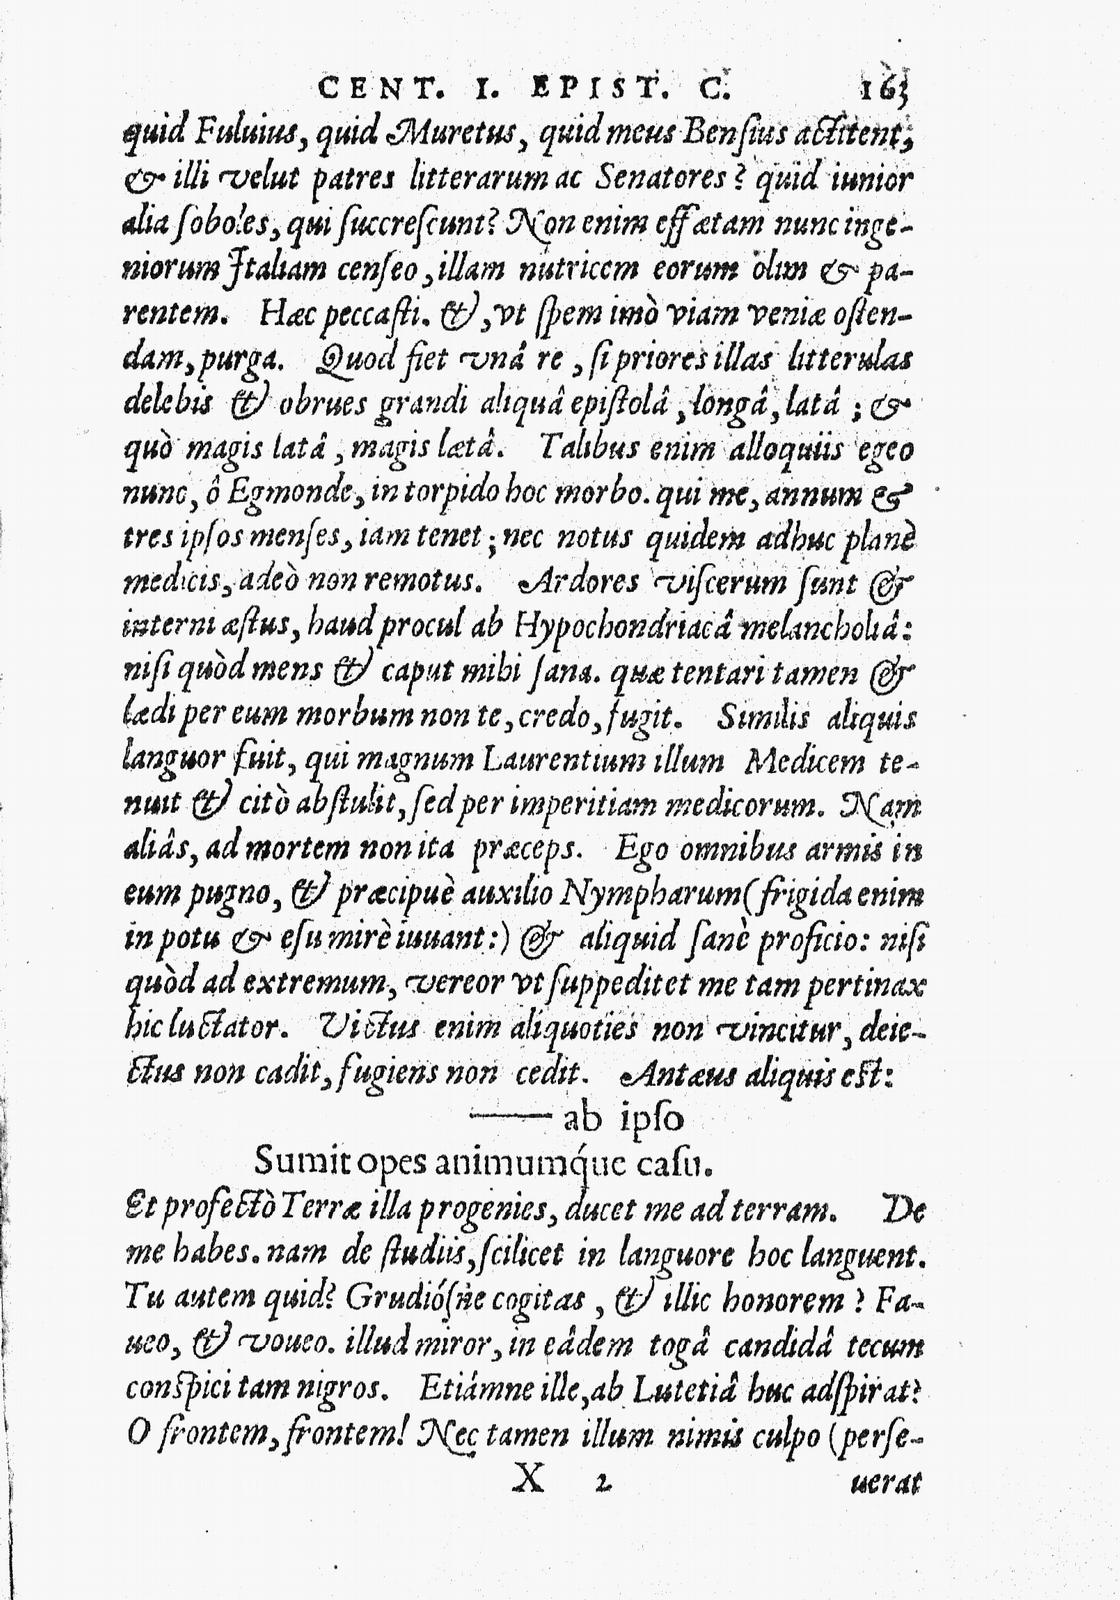 CENT. I. EPIST. C. 163
quid Fuluius, quid Muretus, quid meus Benſius actitent;
& illi velut patres litterarum ac Senatores? quid iunior
alia ſoboles, qui ſuccreſcunt? Non enim effætam nunc inge-
niorum Italiam cenſeo, illam nutricem eorum olim & pa-
rentem. Hæc peccaſti. &, vt ſpem imò viam veniæ oſten-
dam, purga. Quod fiet vnâ re, ſi priores illas litterulas
delebis & obrues grandi aliquâ epiſtolâ, longâ, latâ; &
quò magis latâ, magis lætâ. Talibus enim alloquiis egeo
nunc, ô Egmonde, in torpido hoc morbo. qui me, annum &
tres ipſos menſes, iam tenet; nec notus quidem adhuc planè
medicis, adeò non remotus. Ardores viſcerum ſunt &
interni æſtus, haud procul ab Hypochondriacâ melancholiâ:
niſi quòd mens & caput mihi ſana. quæ tentari tamen &
lædi per eum morbum non te, credo, fugit. Similis aliquis
languor fuit, qui magnum Laurentium illum Medicem te-
nuit & citò abſtulit, ſed per imperitiam medicorum. Nam
aliâs, ad mortem non ita præceps. Ego omnibus armis in
eum pugno, & præcipuè auxilio Nympharum (frigida enim
in potu & eſu mirè iuuant:) & aliquid ſanè proficio: niſi
quòd ad extremum, vereor vt ſuppeditet me tam pertinax
hic luctator. Victus enim aliquoties non vincitur, deie-
ctus non cadit, fugiens non cedit. Antæus aliquis eſt:
—— ab ipſo
Sumit opes animumq́ue caſu.
Et profectò Terræ illa progenies, ducet me ad terram. De
me habes. nam de ſtudiis, ſcilicet in languore hoc languent.
Tu autem quid? Grudióſne cogitas, & illic honorem? Fa-
ueo, & voueo. illud miror, in eâdem togâ candidâ tecum
conſpici tam nigros. Etiámne ille, ab Lutetiâ huc adſpirat?
O frontem, frontem! Nec tamen illum nimis culpo (perſe-
X 2 uerat